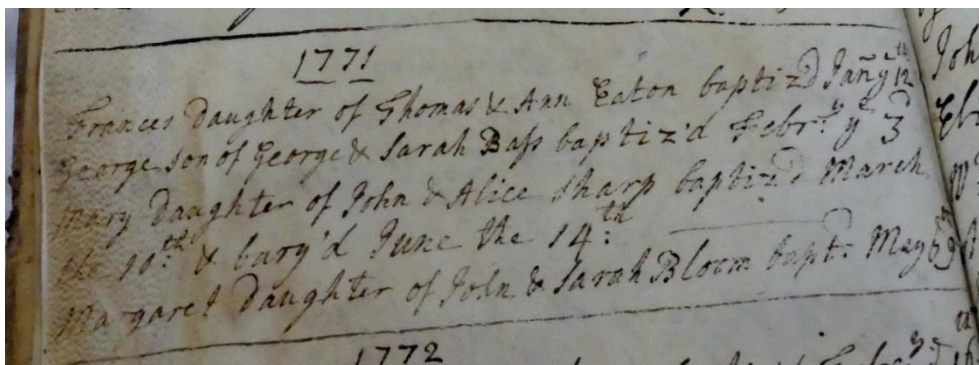 1771
Frances Daughter of Thomas & Ann Eaton baptiz'd Jany 12th
George son of George & Sarah Bass baptiz'd Febry ye 3d
Mary Daughter of John & Alice Sharp baptiz'd March
the 10th & bury'd June the 14th
Margaret Daughter of John & Sarah Bloom bapt: May
1772